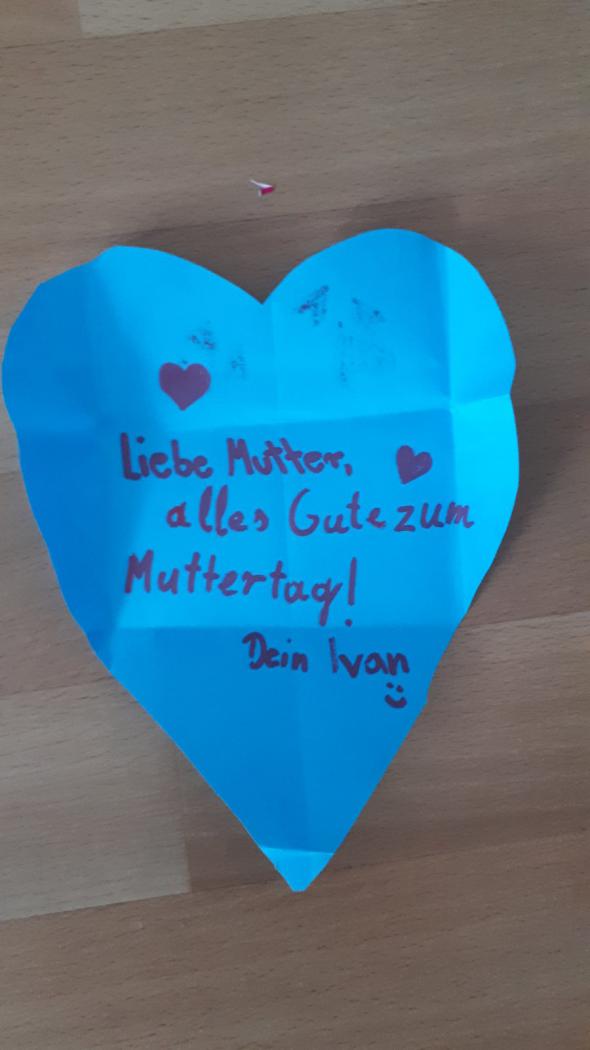 Liebe Mutter,
alles Gute zum
Muttertag!
Dein Ivan